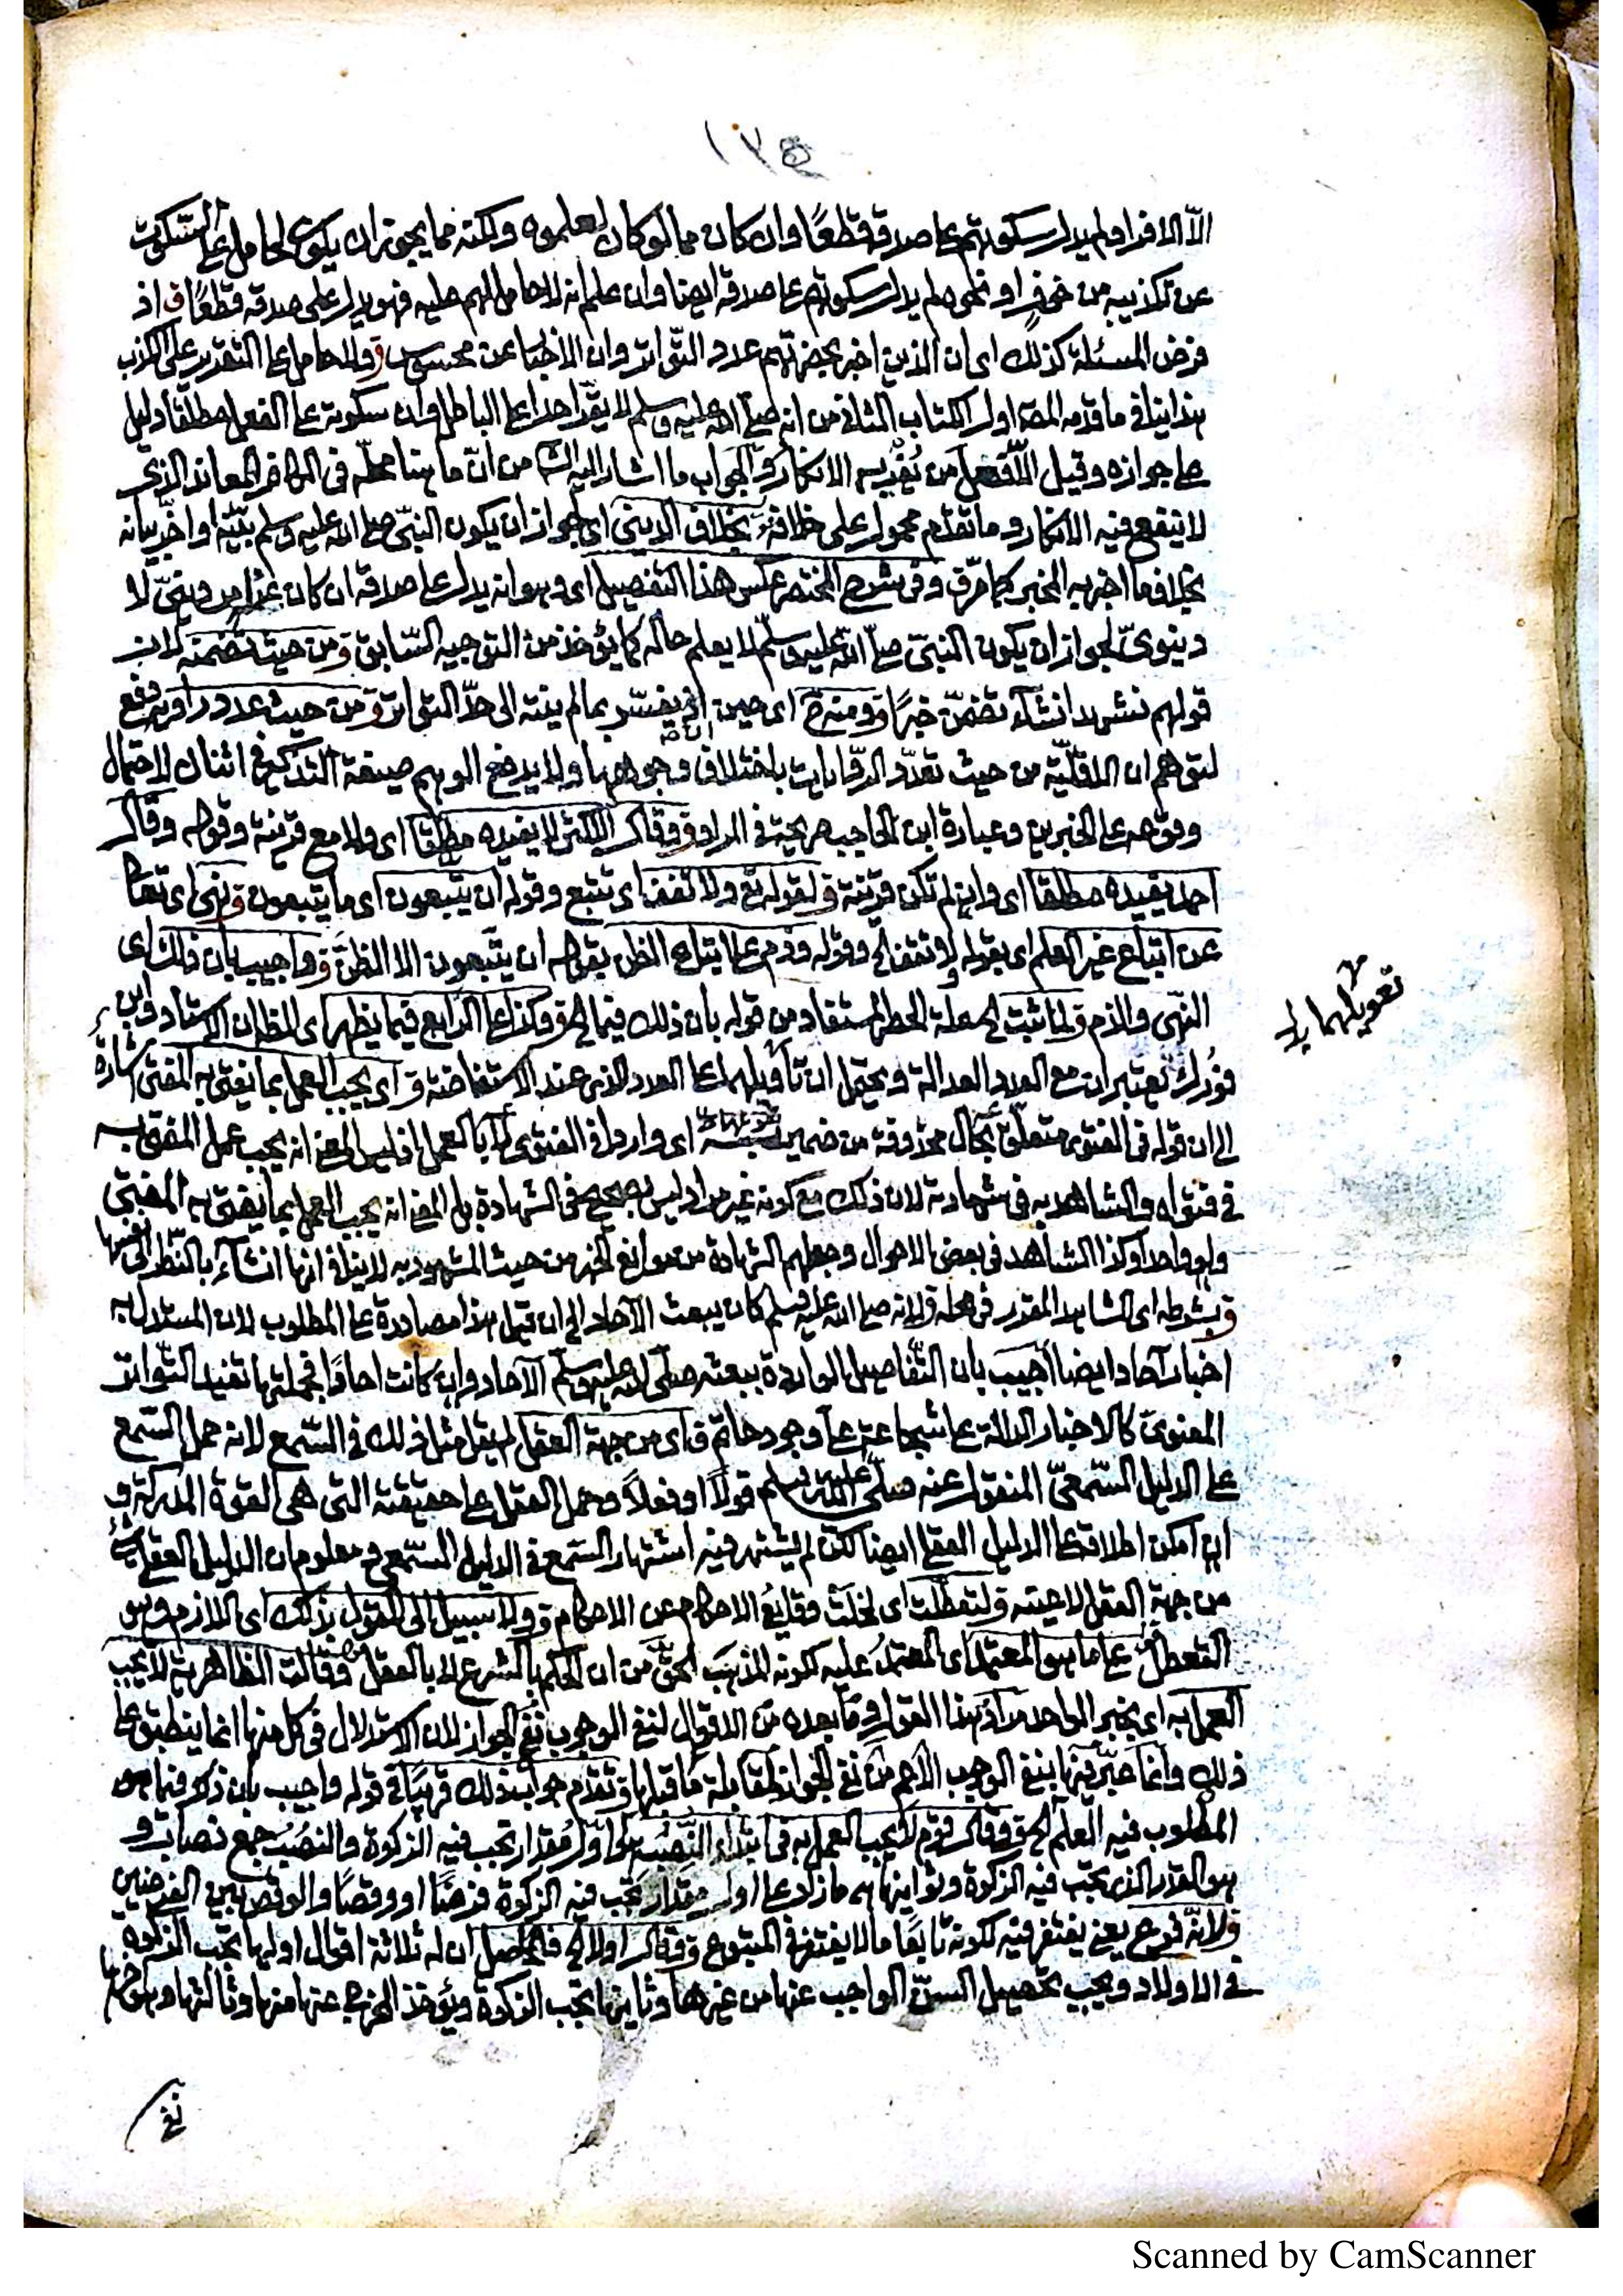 ١٢٥
الّا الافراد لم يدل سكوتهم على صدقه قطعًا وان كان مما لو كان لعلموه ولكنه مما يجوز ان يكون لهم حامل على السّكوت
عن تكذيبه من خوف او نحوه لم يدل سكوتهم على صدقه ايضا وان علم انه لا حامل لهم عليه فهو يدل على صدقه قطعًا ق اذ
فرض المسئلة كذلك اى ان الذين اخبر بحضرتهم عدد التّواتر وان الاخبار عن محسوس ق ولا حامل على التقرير على الكذب
هذا ينافي ما قدمه المصـ اول الكتاب الثاني من انه صلى الله عليه وسلم لا يقرّ احدا على الباطل وان سكوته على الفعل مطلقا دليل
على جوازه وقيل الّا فعل من يغريه الانكار والجواب ما اشار اليه الشـ من انّ ما هنا محلّه في الكافر المعاند الذي
لا ينفع فيه الانكار وما تقدم محمول على خلافه ق بخلاف الدينى اى لجواز ان يكون النبيّ صلى الله عليه وسلم بيّنه او اخّر بيانه
بخلاف ما اخبر به المخبر كما مرّ ق وفي شرح المختصر عكس هذا التفصيل اى وهو انه يدل على صدقه ان كان عن امر دينىّ لا
دينوىّ لجواز ان يكون النبىّ صلى الله عليه وسلّم لا يعلم حاله كما يؤخذ من التوجيه السّابق ق ومن حيث تضمنه لان
قولهم نشهد انشاء تضمّن خبرًا ق ومنه ح اى حين اذ يفسّر بما لم ينته الى حدّ التواتر ق من حيث عدد راويه دفع
لتوهم ان الاقلّيّة من حيث تعدّد الرّوايات باختلاف وجوهها ولا يدفع الوهم صيغة التذكير في اثنان لاحتمال
وقوعه على الخبرين وعبارة ابن الحاجب صريحة في المراد ق وقال الاكثر لا يفيده مطلقا اى ولا مع قرينة وقوله وقال
احمد يفيده مطلقا اى وان لم تكن قرينة ق لقوله تع ولا تقف اى تتبع وقوله ان يتبعون اى ما يتبعون ق نهى اى تعالى
عن اتباع غير العلم اى بقوله ولا تقف الخ وقوله وذم على اتباع الظن بقوله ان يتّبعون الا الظنّ ق واجيب بان ذلك اى
النهى والذم ق لما ثبت الخ علة الحصر المستفاد من قوله بان ذلك فيما الخ ق وكذا على الرّابع فيما يظهر اى الظاهر ان الاستاد وابن
فورك يعتبران مع العدد العدالة ويحتمل ان تأويلهما على العدد الذى عند الاستفاضة ق اى يجب العمل بما يفتى به المفتى اشارة
تعويلهما بدل
الى ان قوله فى الفتوى متعلّق بحال محذوفة من ضمير به اى واردا في الفتوى لا بالعمل اذ ليس المعنى انه يجب عمل المفتى به
في فتواه والشاهد به في شهادته لان ذلك مع كونه غير مراد ليس بصحيح في الشهادة بل المعنى انه يجب العمل بما يفتى به المفتى
ولو واحدا وكذا الشاهد في بعض الاحوال وجعلهم الشهادة من مواضع الخبر من حيث المشهود به لا ينافي انها انشآء بالنّظر الى نفسها
ق بشرطه اى الشاهد المقرر في محله ق لانه صلى الله عليه وسلم كان يبعث الآحاد الى ان قيل هذا مصادرة على المطلوب لان المستدل به
اخبار آحاد ايضا اجيب بان التّفاصيل الواردة ببعثه صلّى الله عليه وسلّم الآحاد وان كانت احادًا فجملتها تفيد التّواتر
المعنوىّ كالاخبار الدالة على شجاعة على وجود حاتم ق اى من جهة العقل لم يقل مثل ذلك في السّمع لانه حمل السّمع
على الدليل السّمعىّ المنقول عنه صلّى الله عليه وسلم قولًا او فعلًا وحمل العقل على حقيقته التى هى القوة المدركة و
ان امكن اطلاقه على الدليل العقلى ايضا لكن لم يشتهر فيه اشتهار السّمع في الدليل السّمعى ومعلوم ان الدليل العقلى
من جهة العقل لا عينه ق لتعطّلت اى لخلت وقايع الاحكام عن الاحكام ق ولا سبيل الى القول بذلك اى اللازم وهو
التعطل ق على ما هو المعتمد اى المعتمد عليه لكونه المذهب الحقّ من ان الحكم بالشرع لا بالعقل ق وقالت الظاهرية لا يجب
العمل به اى بخبر الواحد مراد هذا القول وما بعده من الاقوال لنفى الوجوب نفى الجواز لان الاستدلال في كل منها انما ينطبق على
ذلك وانما عبّر فيها بنفى الوجوب الاعم من نفى الجواز لمقابلة ما قبلها ق تقدم جواب ذلك قريبًا في قوله واجيب بان ذلك فيما هو
المطلوب فيه العلم الخ ق وقال قوم لا يجب العمل به في ابتداء النّصب هى اوّل مقدار تجب فيه الزكوة والنصب جمع نصاب و
هو القدر الذى تجب فيه الزكوة وثوانيها هى ما زاد على اول مقدار تجب فيه الزكوة فرضًا او وقصًا والوقص بين الفرضين
ق لانّه فرع يعنى يغتفر فيه لكونه تابعًا ما لا يغتفر في المتبوع ق وقال اولا الخ فالحاصل ان له ثلاثة اقوال اولها تجب الزكوة
في الاولاد ويجب تحصيل السنّ الواجب عنها من غيرها وثانيها تجب الزكوة ويؤخذ المخرج عنها منها وثالثها وهو آخرها
نفى
Scanned by CamScanner